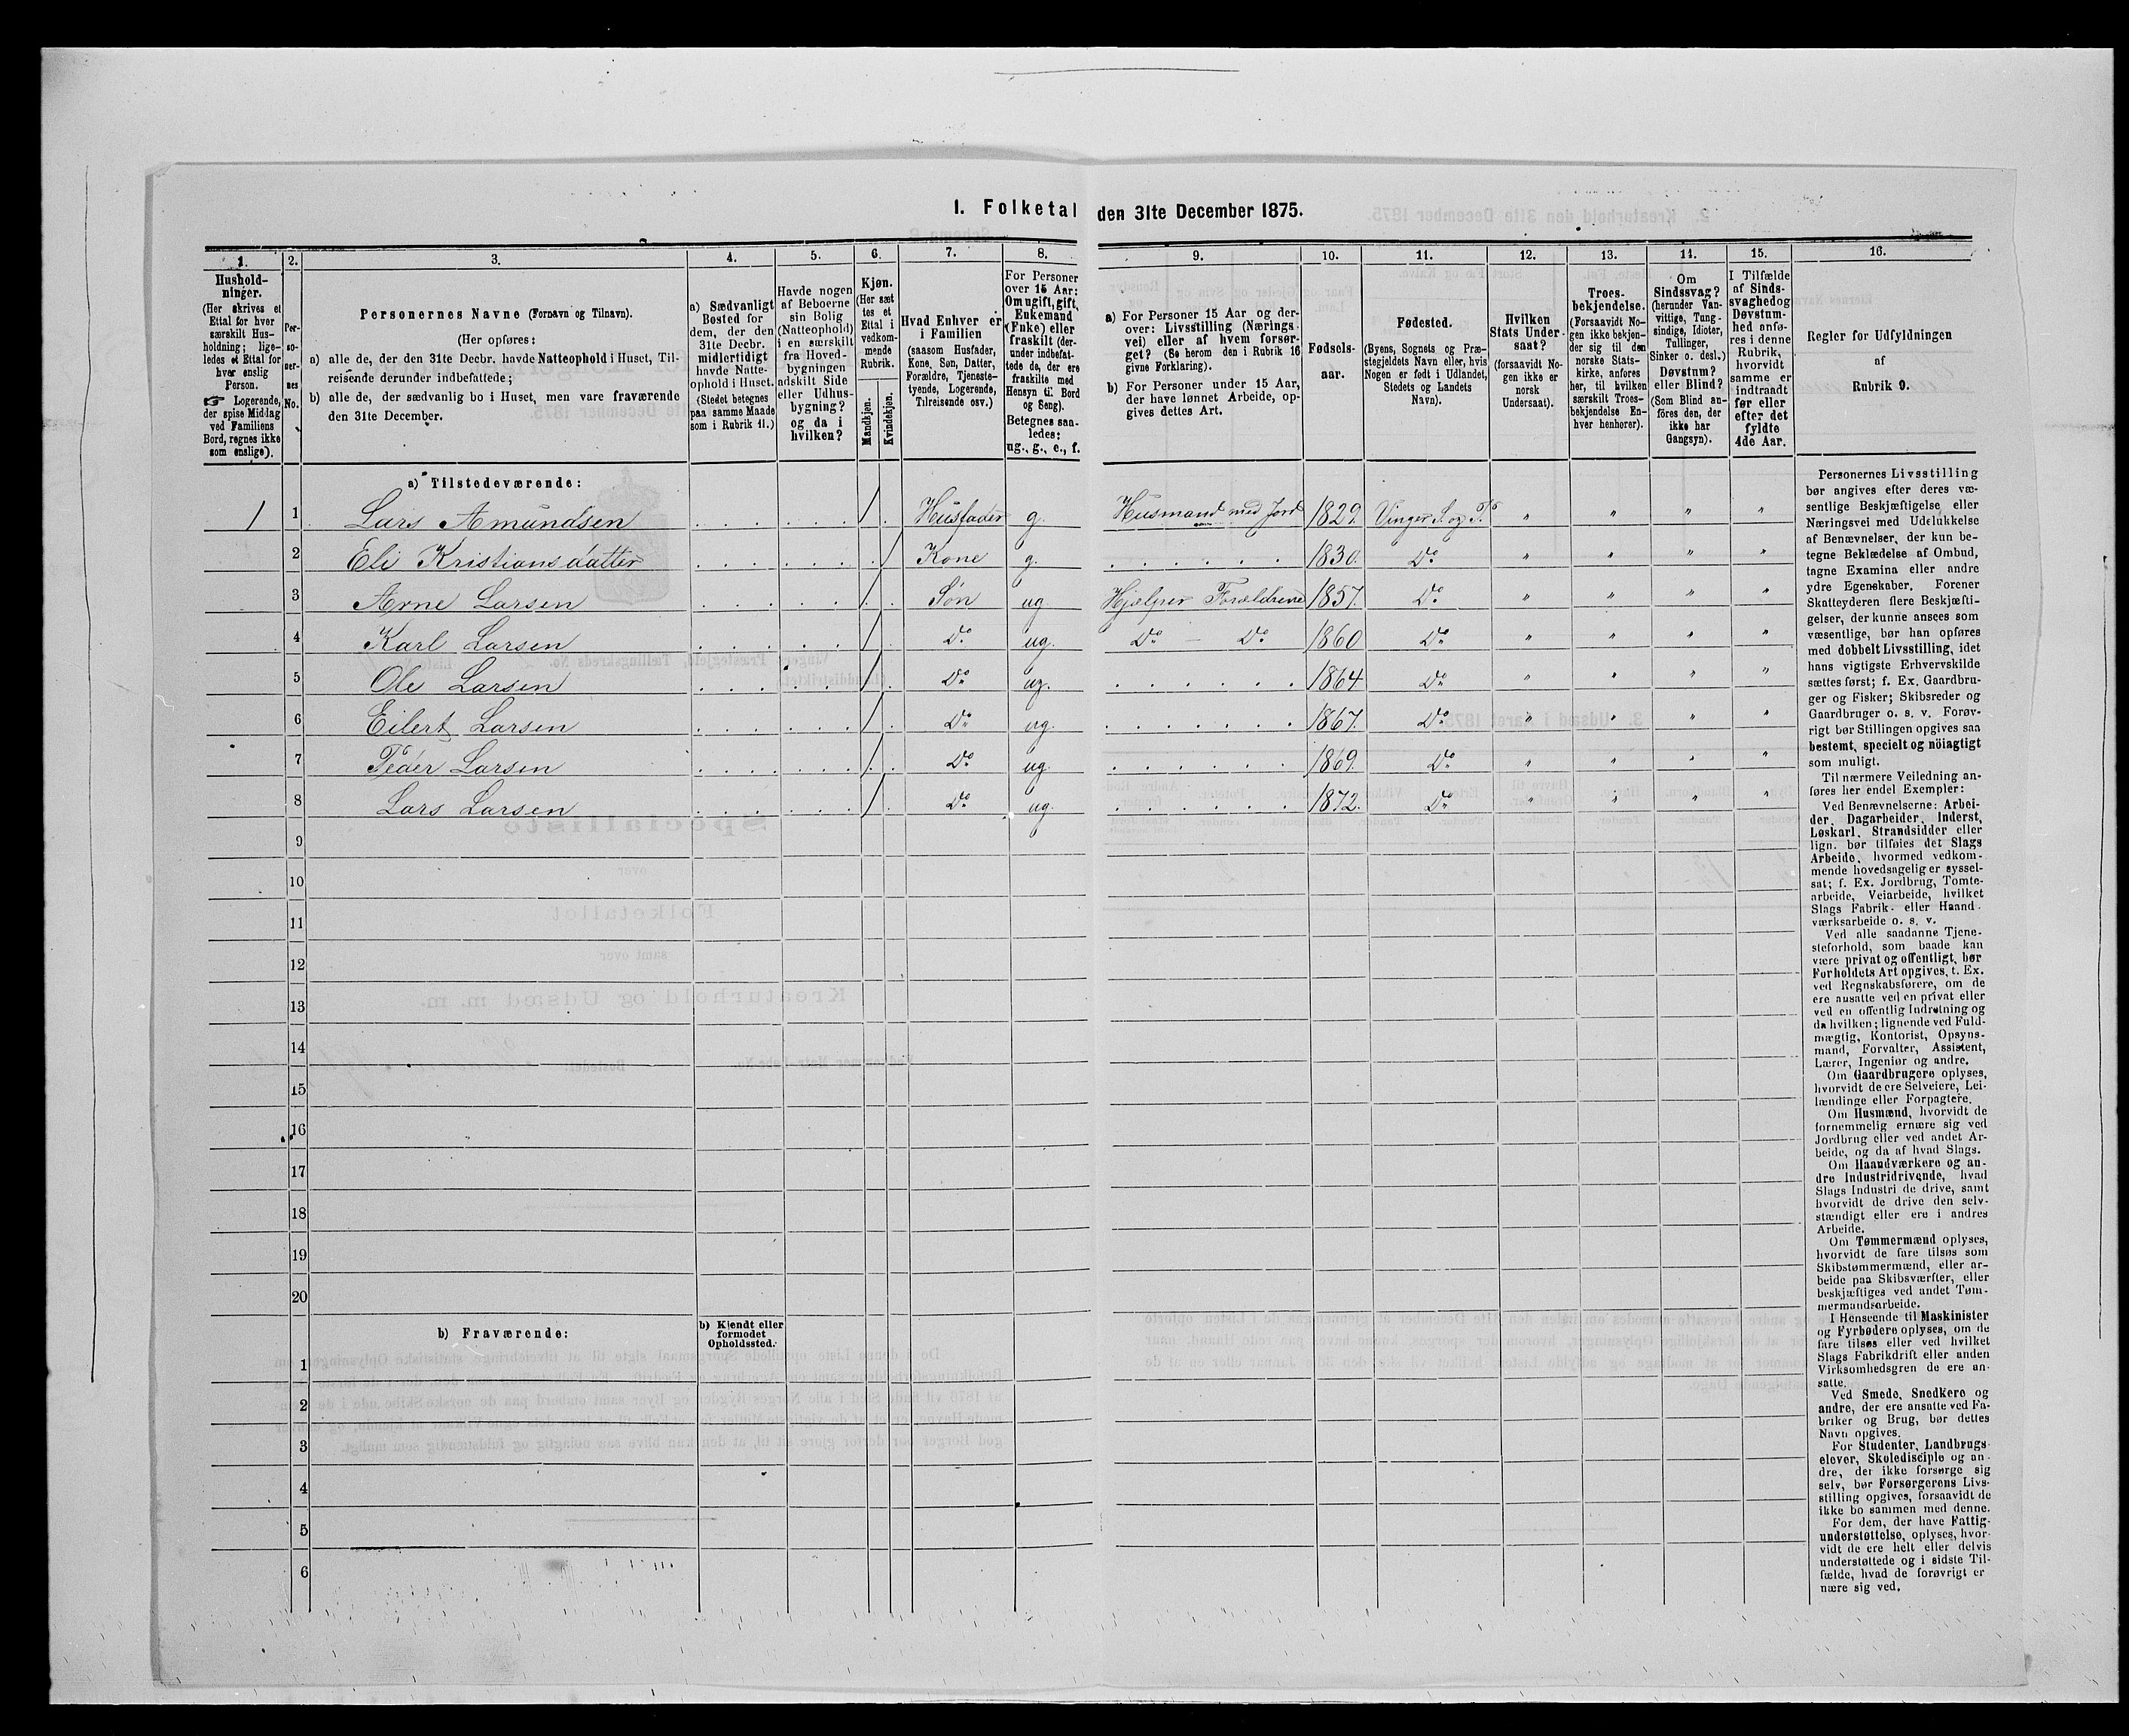 1. Folketal den 31te December 1875.
1. 2. 3. 4. 5. 6. 7. 8. 9. 10. 11. 12. 13. 14. 15. 16.
Hushold-
ninger.
(Her skrives et
Ettal for hver
særskilt Hus-
holdning; lige-
ledes et Ettal for
hver enslig
Person.
☞ Logerende,
der spise Middag
ved Familiens
Bord, regnes ikke
som enslige).
Per-
so-
ner-
nes
No.
Personernes Navne (Fornavn og Tilnavn).
(Her opføres:
a) alle de, der den 31te Decbr. havde Natteophold i Huset, Til-
reisende derunder indbefattede;
b) alle de, der sædvanlig bo i Huset, men vare fraværende
den 31te December.
a) Sædvanligt
Bosted for
dem, der den
31te Decbr.
midlertidigt
havde Natte-
ophold i Huset.
(Stedet betegnes
paa samme Maade
som i Rubrik 11.)
Havde nogen
af Beboerne
sin Bolig
(Natteophold)
i en særskilt
fra Hoved-
bygningen
adskilt Side
eller Udhus-
bygning?
og da i
hvilken?
Kjøn.
(Her sæt
tes et
Ettal i
vedkom-
mende
Rubrik.
Mandkjøn.
Kvindekjøn.
Hvad Enhver er
i Familien
(saasom Husfader,
Kone, Søn, Datter,
Forældre, Tjeneste-
tyende, Logerende,
Tilreisende osv.)
For Personer
over 15 Aar:
Om ugift, gift,
Enkemand
(Enke) eller
fraskilt (der-
under indbefat-
tede de, der ere
fraskilte med
Hensyn til Bord
og Seng).
Betegnes saa-
ledes:
ug., g., e., f.
a) For Personer 15 Aar og der-
over: Livsstilling (Nærings-
vei) eller af hvem forsør-
get? (Se herom den i Rubrik 16
givne Forklaring).
b) For Personer under 15 Aar,
der have lønnet Arbeide, op-
gives dettes Art.
Fødsels-
aar.
Fødested.
(Byens, Sognets og Præ-
stegjeldets Navn eller, hvis
Nogen er født i Udlandet,
Stedets og Landets
Navn).
Hvilken
Stats Under-
saat?
(forsaavidt No-
gen ikke er
norsk
Undersaat).
Troes-
bekjendelse.
(Forsaavidt No-
gen ikke bekjen-
der sig til den
norske Stats-
kirke, anføres
her, til hvilken
særskilt Troes-
bekjendelse En-
hver henhører).
Om
Sindssvag?
(herunder Van-
vittige, Tung-
sindige, Idioter,
Tullinger,
Sinker o. desl.)
Døvstum?
eller Blind?
(Som Blind an-
føres den, der
ikke har
Gangsyn).
I Tilfælde
af Sinds-
svaghed og
Døvstum-
hed anfø-
res i denne
Rubrik,
hvorvidt
samme er
indtraadt
før eller
efter det
fyldte
4de Aar.
Regler for Udfyldningen
af
Rubrik 9.
a) Tilstedeværende:
1 1 Lars Amundsen 1 Husfader g. Husmand med Jord 1829. Vinger S. og P. " " " "
2 Eli Kristiansdatter 1 Kone g. 1830. Do " " " "
3 Arne Larsen 1 Søn ug Hjælper Forældrene 1857. Do " " " "
4 Karl Larsen 1 Do ug. Do – Do 1860 Do " " " "
5 Ole Larsen 1 Do ug. 1864 Do " " " "
6 Eilert Larsen 1 Do ug. 1867. Do " " " "
7 Peder Larsen 1 Do ug. 1869. Do " " " "
8 Lars Larsen 1 Do ug. 1872. Do " " " "
9
10
11
12
13
14
15
16
17
18
19
20
b) Fraværende:
b) Kjendt eller
formodet
Opholdssted.
1
2
3
4
5
6
Personernes Livsstilling
bør angives efter deres væ-
sentlige Beskjæftigelse eller
Næringsvei med Udelukkelse
af Benævnelser, der kun be-
tegne Beklædelse af Ombud,
tagne Examina eller andre
ydre Egenskaber. Forener
Skatteyderen flere Beskjæfti-
gelser, der kunne ansees som
væsentlige, bør han opføres
med dobbelt Livsstilling, idet
hans vigtigste Erhvervskilde
sættes først; f. Ex. Gaardbru-
ger og Fisker; Skibsreder og
Gaardbruger o. s. v. Forøv-
rigt bør Stillingen opgives saa
bestemt, specielt og nöiagtigt
som muligt.
Til nærmere Veiledning an-
føres her endel Exempler:
Ved Benævnelserne: Arbei-
der, Dagarbeider, Inderst,
Løskarl, Strandsidder eller
lign. bør tilføies det Slags
Arbeide, hvormed vedkom-
mende hovedsagelig er syssel-
sat; f. Ex. Jordbrug, Tomte-
arbeide, Veiarbeide, hvilket
Slags Fabrik- eller Haand-
værksarbeide o. s. v.
Ved alle saadanne Tjene-
steforhold, som baade kan
være privat og offentligt, bør
Forholdets Art opgives, t. Ex.
ved Regnskabsførere, om de
ere ansatte ved en privat eller
ved en offentlig Indretning og
da hvilken; lignende ved Fuld-
mægtig, Kontorist, Opsyns-
mand, Forvalter, Assistent,
Lærer, Ingeniør og andre.
Om Gaardbrugere oplyses,
hvorvidt de ere Selveiere, Lei-
lændinge eller Forpagtere.
Om Husmænd, hvorvidt de
fornemmelig ernære sig ved
Jordbrug eller ved andet Ar-
beide, og da af hvad Slags.
Om Haandværkere og an-
dre Industridrivende, hvad
Slags Industri de drive, samt
hvorvidt de drive den selv-
stændigt eller ere i andres
Arbeide.
Om Tømmermænd oplyses,
hvorvidt de fare tilsøs som
Skibstømmermænd, eller ar-
beide paa Skibsværfter, eller
beskjæftiges ved andet Tøm-
mermandsarbeide.
I Henseende til Maskinister
og Fyrbødere oplyses, om de
fare tilsøs eller ved hvilket
Slags Fabrikdrift eller anden
Virksomhedsgren de ere an-
satte.
Ved Smede, Snedkere og
andre, der ere ansatte ved Fa-
briker og Brug, bør dettes
Navn opgives.
For Studenter, Landbrugs-
elever, Skoledisciple og an-
dre, der ikke forsørge sig
selv, bør Forsørgerens Livs-
stilling opgives, forsaavidt de
ikke bo sammen med denne.
For dem, der have Fattig-
understøttelse, oplyses, hvor-
vidt de ere helt eller delvis
understøttede og i sidste Til-
fælde, hvad de forøvrigt er-
nære sig ved.